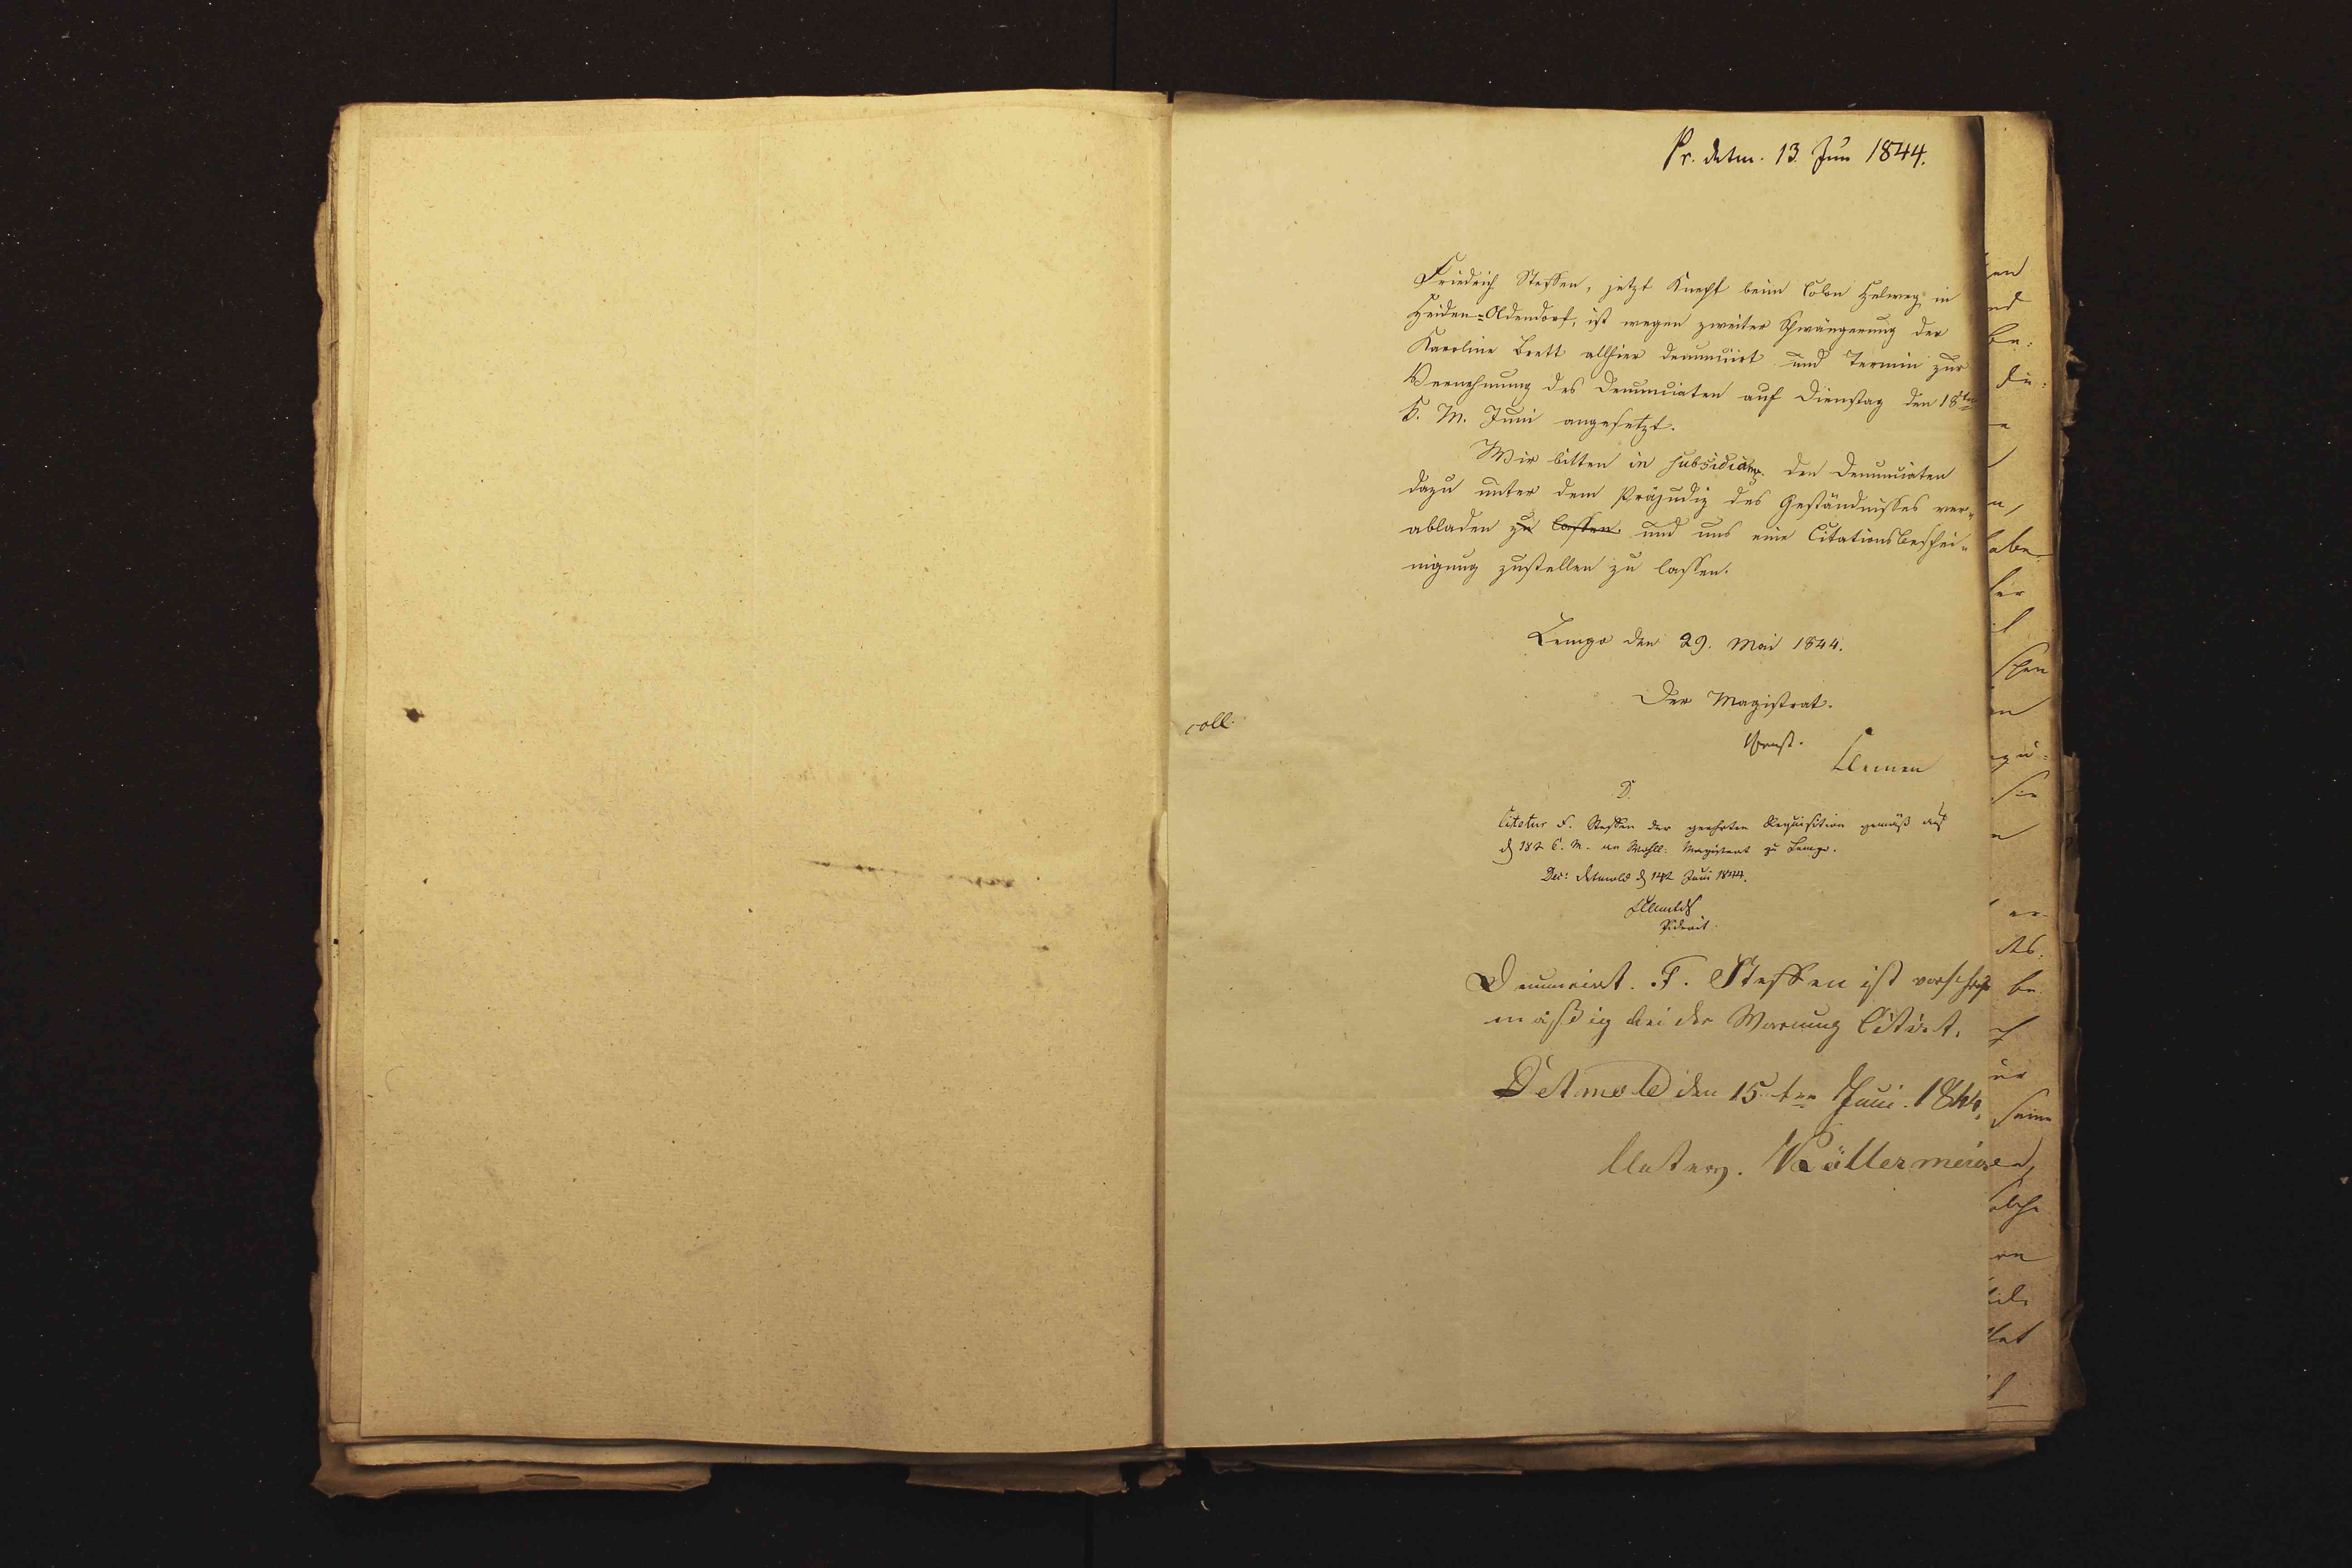 Pr. Detm. 13. Jun 1844.
Friedrich Steffen, jetzt Knecht beim Colon Helweg in
Heiden-Oldendorf, ist wegen zweiter Schwängerung der
Karoline Brett allhier denunciirt und Termin zur
Vernehmung des Denunciaten auf Dienstag den 18ten
k. M. Juni angesetzt.
Wir bitten in subsidium den Denunciaten
dazu unter dem Präjudiz des Geständnisses ver-
abladen zu lassen und uns eine Citationsbeschei-
nigung zustellen zu lassen.
Lemgo den 29. Mai 1844.
Der Magistrat.
coll.
D.
Citetur F. Steffen der geehrten Requisition gemäß auf
d 18t d. M. an Wohll. Magistrat zu Lemgo.
Dec: Detmold d 14t Juni 1844.
Piderit.
Denunciat. F. Steffen ist vorschrifts
mäßig bei der Warnung Citirt.
Detmold den 15ten Juni. 1844.
Unterv. Köllermeier